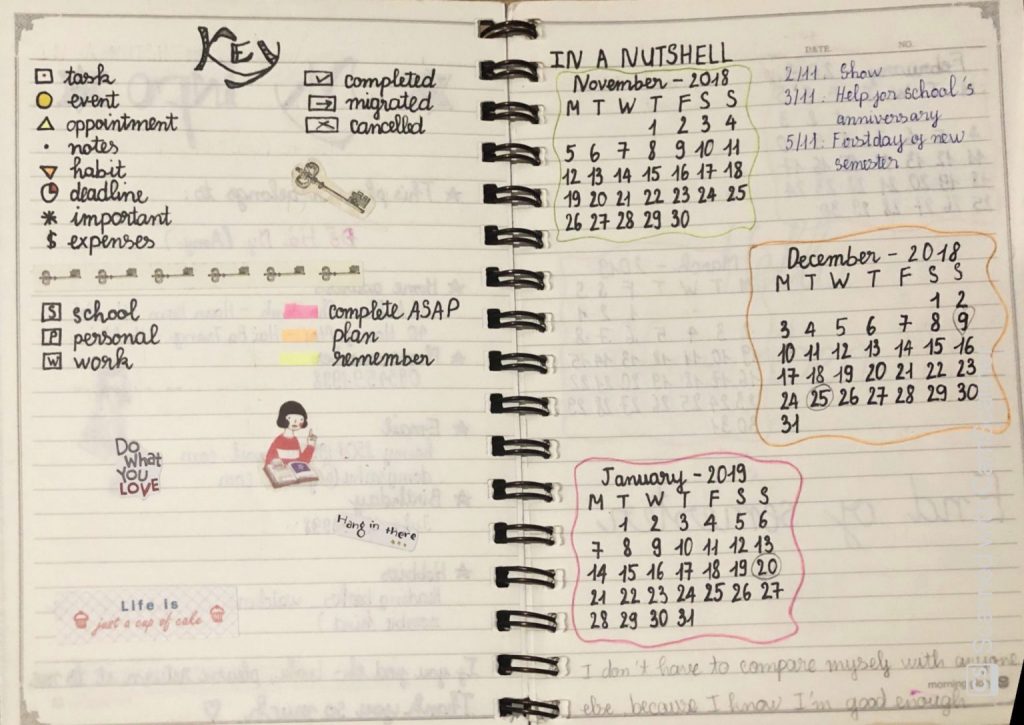 KEY
task
event
appointment
notes
habit
deadline
important
$ expenses
completed
migrated
cancelled
S school
P personal
W work
complete ASAP
plan
remember
DO
WHAT
YOU
LOVE
Hang in there
...
Life is
just a cup of cake
DATE. NO.
IN A NUTSHELL
November - 2018
M T W T F S S
1 2 3 4
5 6 7 8 9 10 11
12 13 14 15 16 17 18
19 20 21 22 23 24 25
26 27 28 29 30
2/11: Show
3/11: Help for school's
anniversary
5/11: First day of new
semester
December - 2018
M T W T F S S
1 2
3 4 5 6 7 8 9
10 11 12 13 14 15 16
17 18 19 20 21 22 23
24 25 26 27 28 29 30
31
January - 2019
M T W T F S S
1 2 3 4 5 6
7 8 9 10 11 12 13
14 15 16 17 18 19 20
21 22 23 24 25 26 27
28 29 30 31
I don't have to compare myself with anyone
else because I know I'm good enough
morning